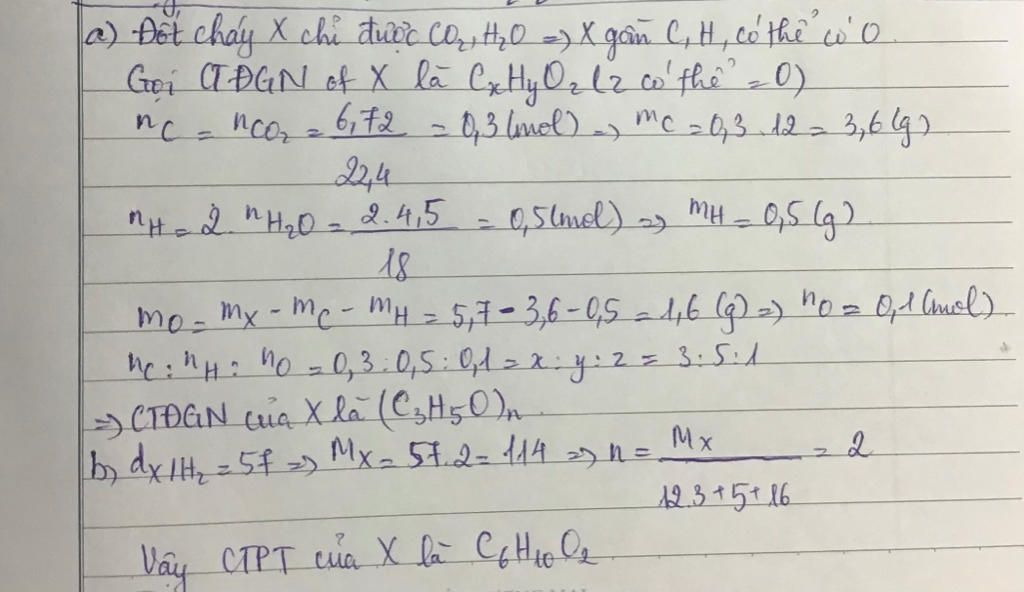 a) Đốt cháy X chỉ được CO2, H2O => X gồm C, H, có thể có O
Gọi CTĐGN of X là CxHyOz (z có thể = 0)
nC = nCO2 = 6,72 / 22,4 = 0,3 (mol) => mC = 0,3 . 12 = 3,6 (g)
nH = 2. nH2O = 2. 4,5 / 18 = 0,5 (mol) => mH = 0,5 (g)
mO = mX - mC - mH = 5,7 - 3,6 - 0,5 = 1,6 (g) => nO = 0,1 (mol)
nC : nH : nO = 0,3 : 0,5 : 0,1 = x : y : z = 3 : 5 : 1
=> CTĐGN của X là (C3H5O)n
b, dX/H2 = 57 => MX = 57. 2 = 114 => n = MX / 12.3 + 5 + 16 = 2
Vậy CTPT của X là C6H10O2